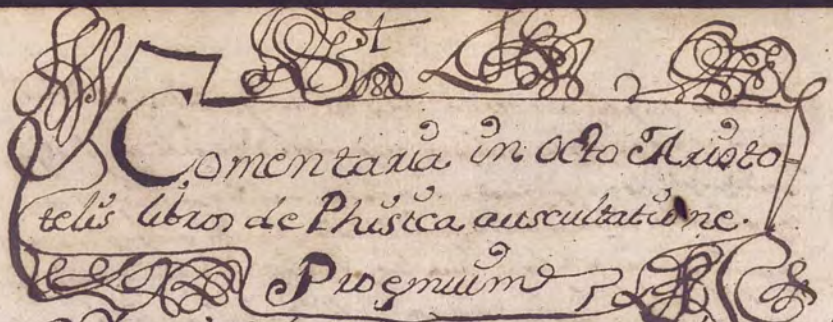 Comentaria in octo Aristo-
telis libros de Phisica auscultatione.
Proemium